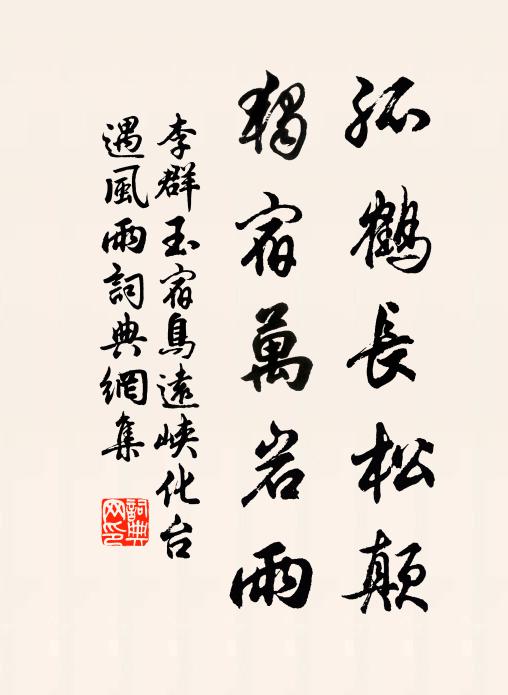 孤鶴長松顛
獨宿萬岩雨
李群玉宿鳥遠峽化台
遇風雨詞典網集
詞典网印